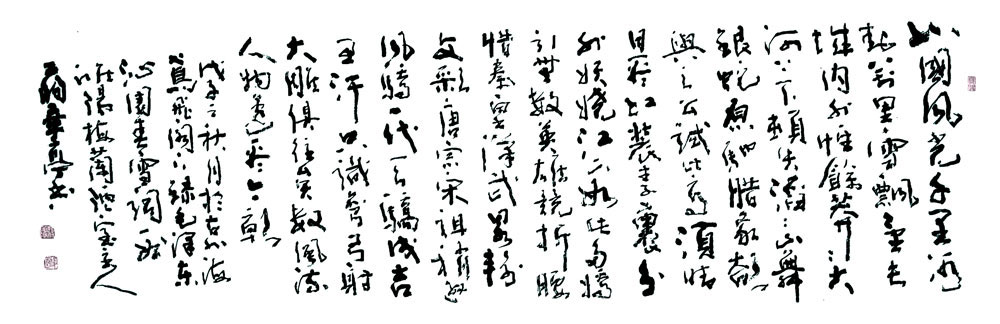 北國風光千里冰
封萬里雪飄望長
城内外惟餘莽莽大
河上下頓失滔滔山舞
銀蛇原馳臘象欲
與天公試比高須晴
日看紅裝素裹分
外妖嬈江山如此多嬌
引無數英雄競折腰
惜秦皇漢武略輸
文彩唐宗宋祖稍遜
風騷一代天驕成吉
思汗只識彎弓射
大雕俱往矣數風流
人物還看今朝
戊子之秋月於古北海
飛閣下録毛澤東
沁園春雪詞一
梅蘭室主人